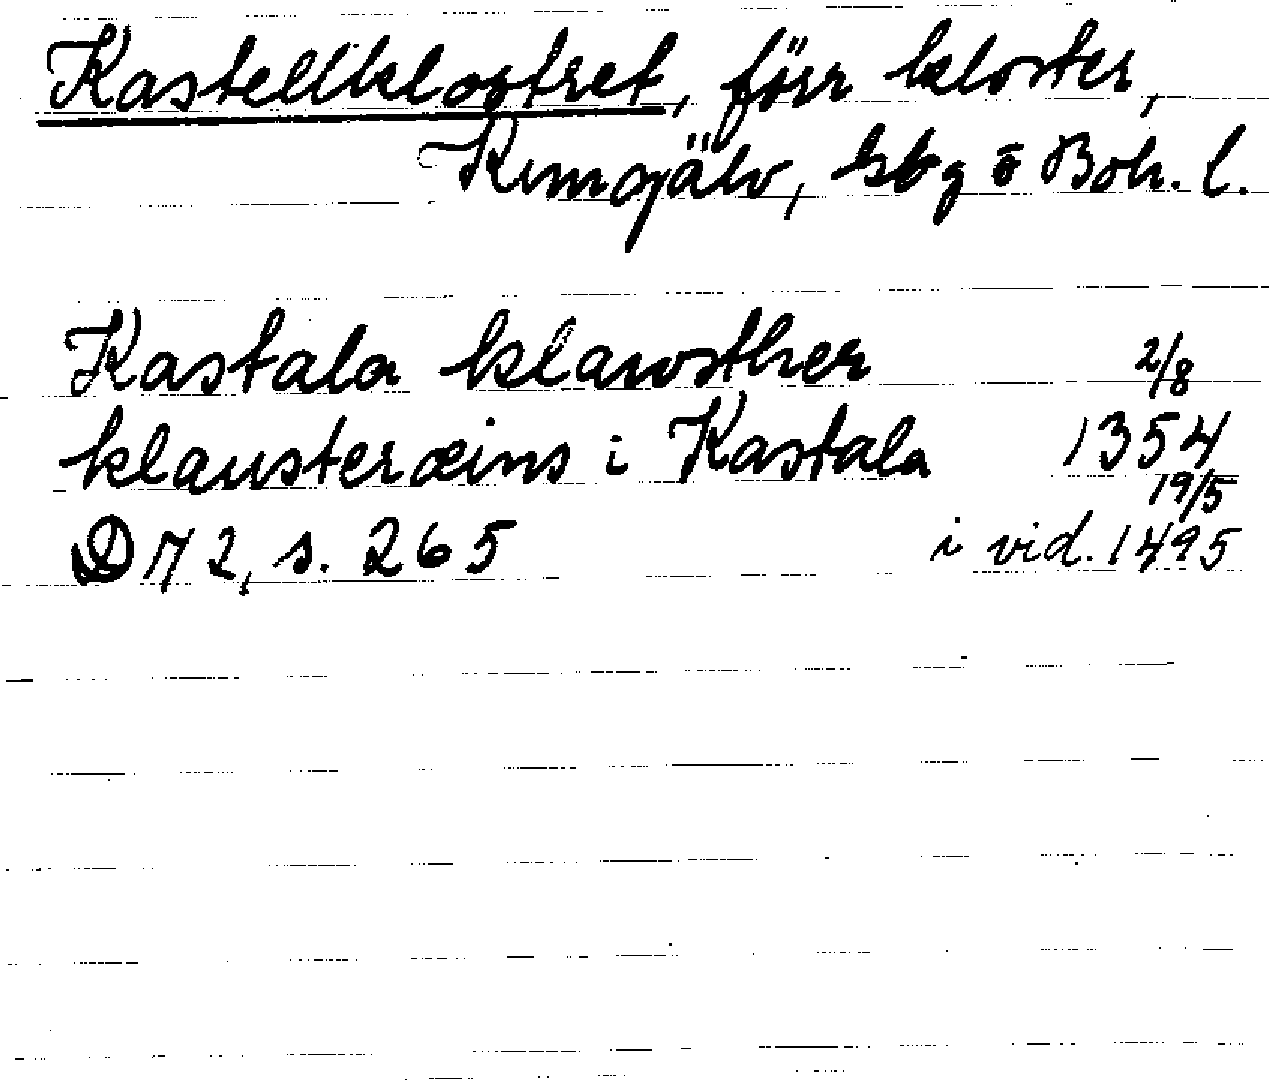 Kastellklostret, förr kloster,
Kungälv, Gbg o Boh. l.
Kastala klawsther 2/8
klausteræins i Kastala 1354
19/5
D 72, s. 265 i vid. 1495